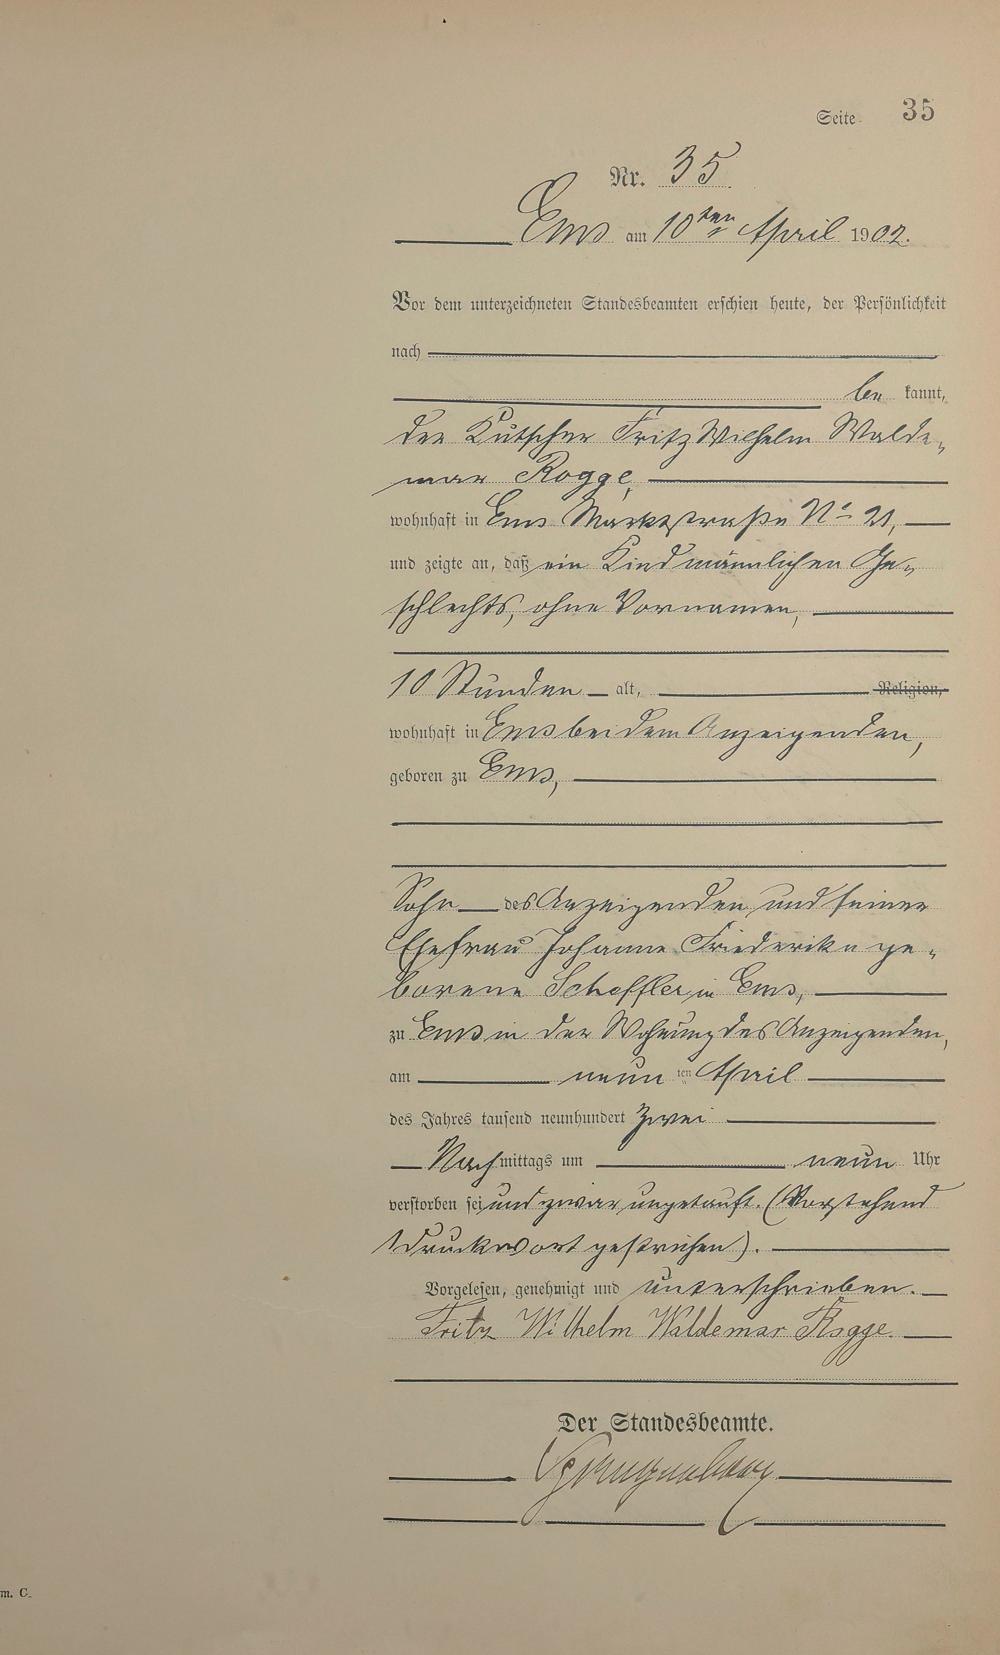 Seite 35
Nr. 35
Ems am 10ten April 1902.
Vor dem unterzeichneten Standesbeamten erschien heute, der Persönlichkeit
nach
be kannt,
der Kutscher Fritz Wilhelm Walde-
mar Rogge,
wohnhaft in Ems Marktstraße No 21,
und zeigte an, daß ein Kind männlichen Ge-
schlechts, ohne Vornamen,
10 Stunden alt, Religion,
wohnhaft in Ems bei dem Anzeigenden,
geboren zu Ems,
Sohn des Anzeigenden und seiner
Ehefrau Johanne Friederike ge-
borene Scheffler in Ems,
zu Ems in der Wohnung des Anzeigenden,
am neun ten April
des Jahres tausend neunhundert zwei
Nachmittags um neun Uhr
verstorben sei und zwar ungetauft. (Vorstehend
1 Druckwort gestrichen).
Vorgelesen, genehmigt und unterschrieben.
Fritz Wilhelm Waldemar Rogge.
Der Standesbeamte.
m. C.